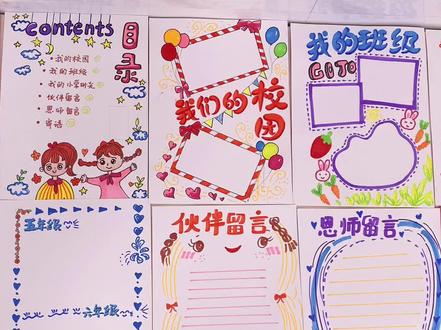 contents
目录
我的校园
我的班级
我的小学朋友
伙伴留言
恩师留言
寄语
我们的校园
我的班级
GOTO
五年级
六年级
伙伴留言
恩师留言